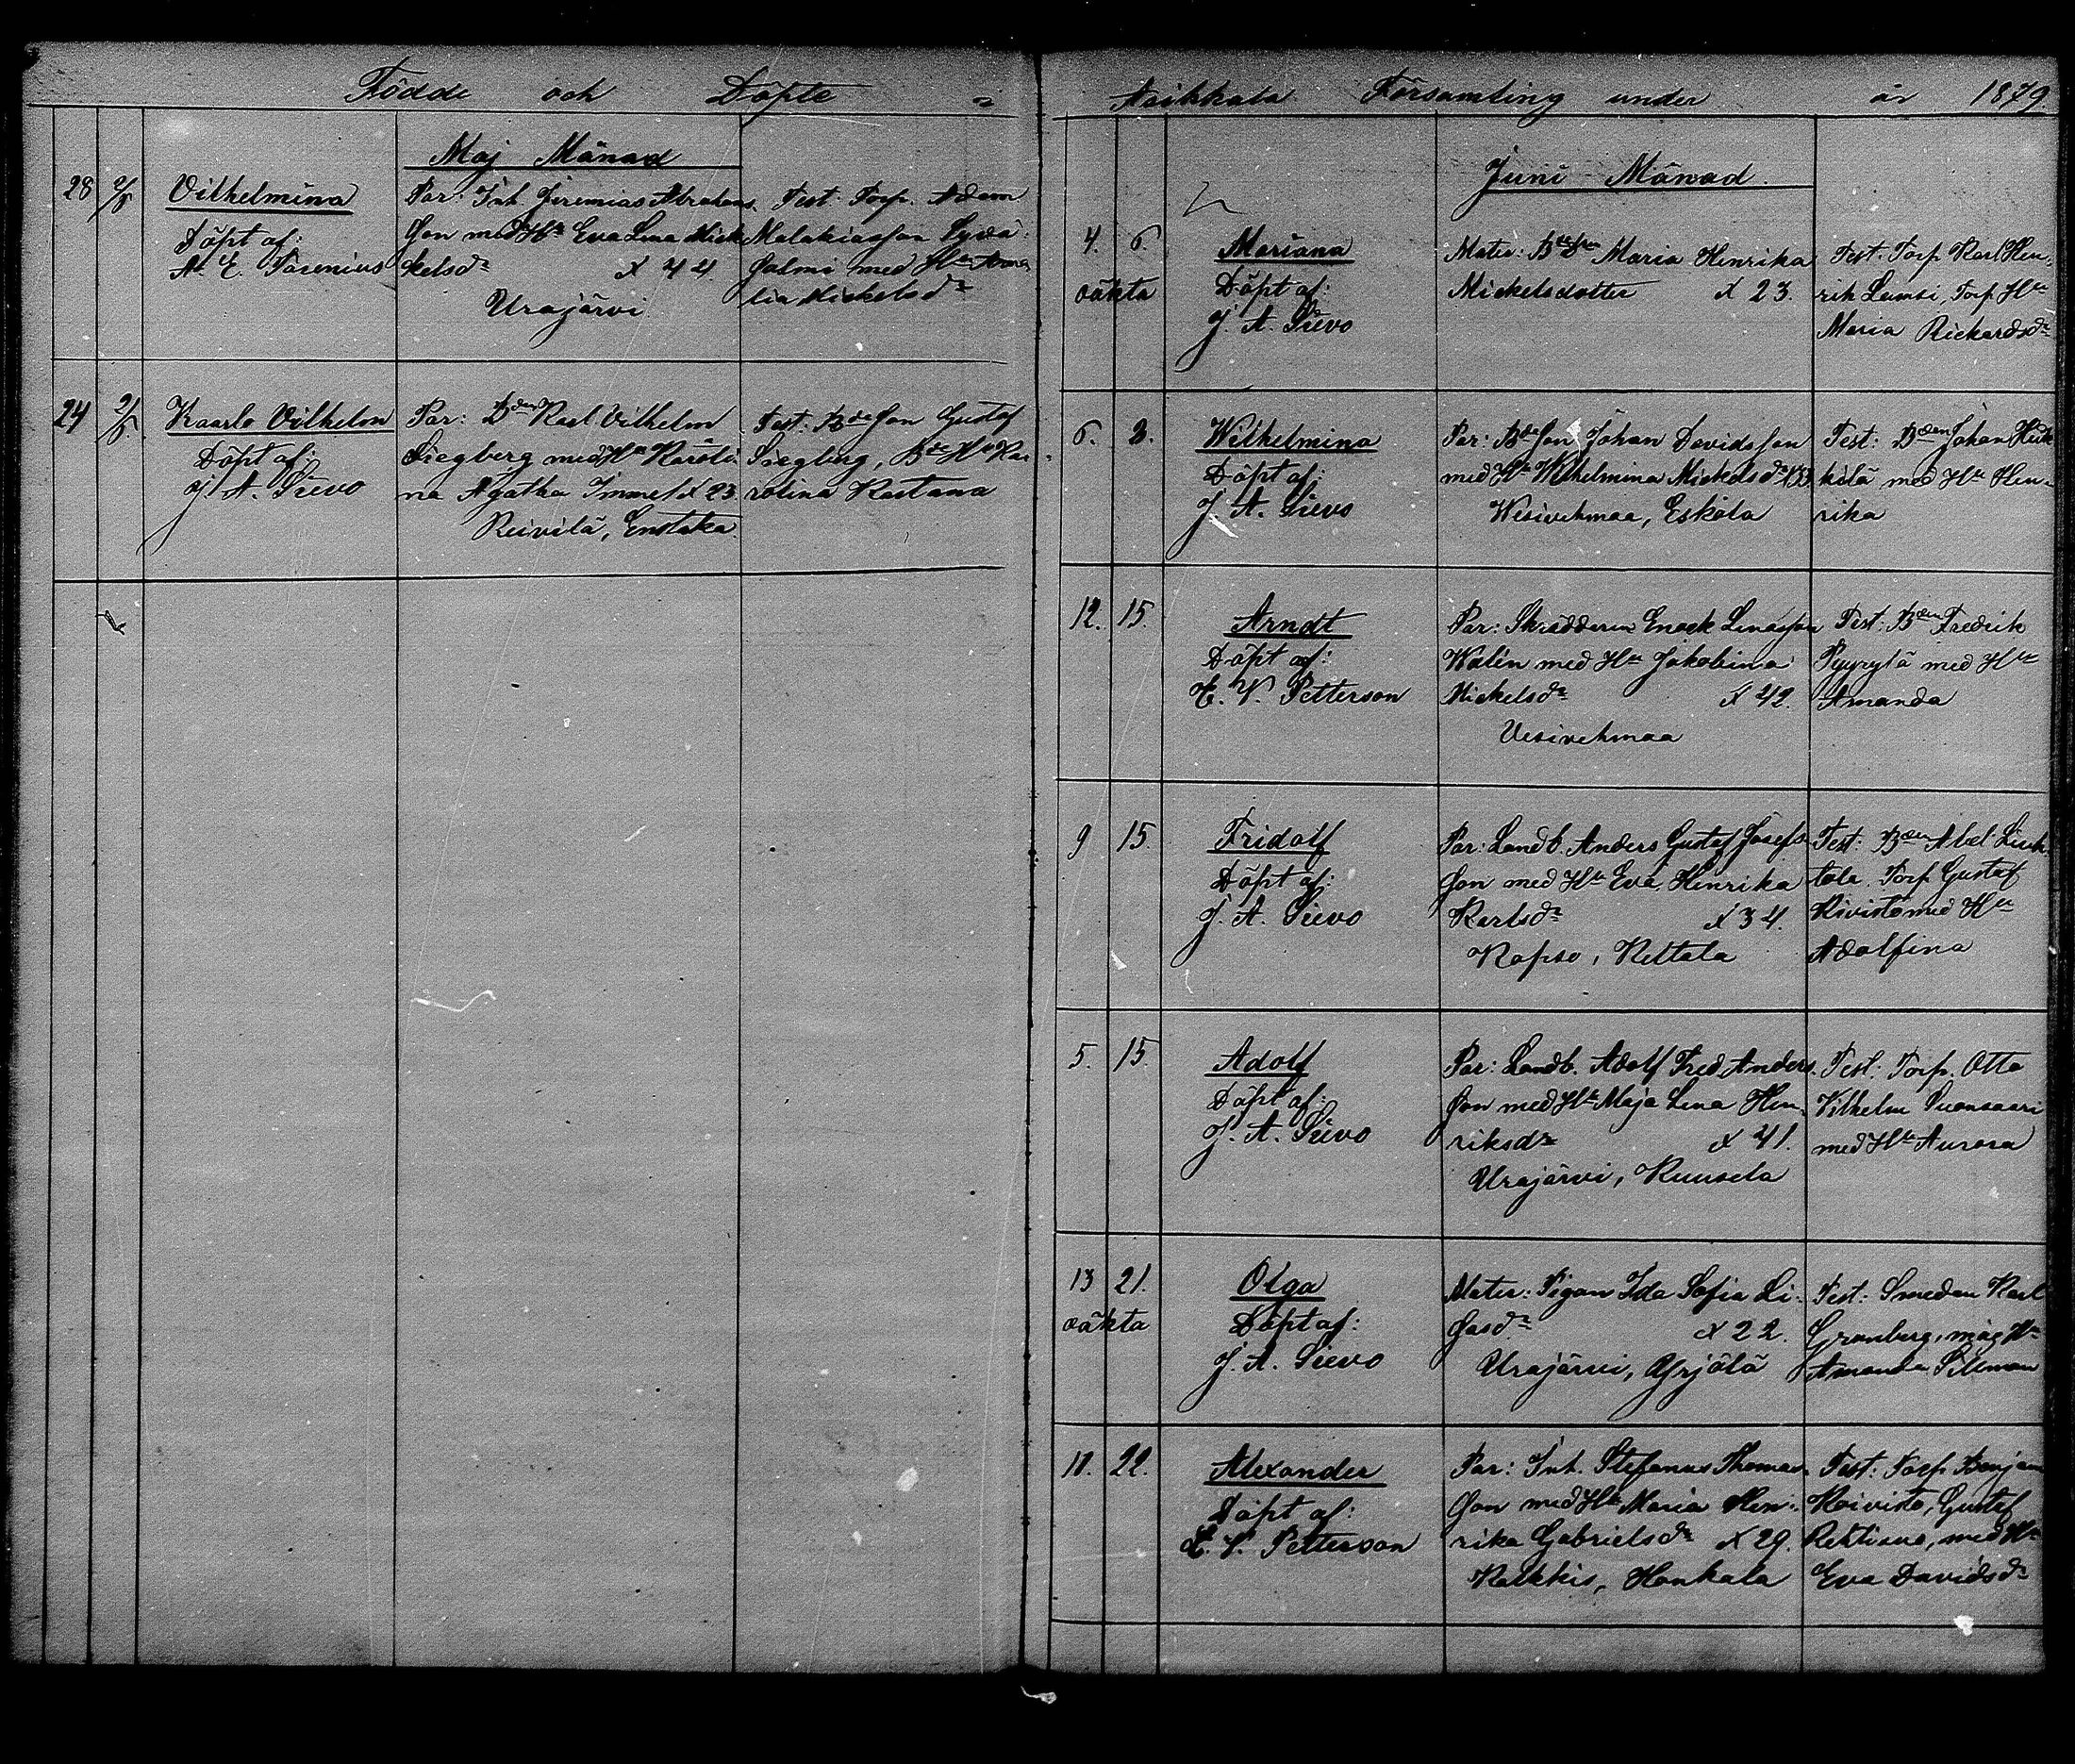 Födde och Döpte
Maj Månad
28 Vilhelmina
Döpt af:
A. E. Forenius
Par: Inh. Jeremias Abrahams
son med Hu Eva Lena Mick
kelsdr 44
Urajärvi
Test: Torp. Adam
Malakiasson Syvä
salmi med Hu
lia Mickelsdr
24 2/5 Kaarlo Vilhelm
Döpt af:
J. A. Sievo
Par: Bden Karl Vilhelm
Siegberg med Hu Karoli
na Agatha Immel 23
Reivilä, Enstaka
Test: Bdeson Gustaf
Siegberg, Bde Hu Ka
rolina Rastana
Asikkala Församling under år 1879
Juni Månad.
4. 6 Mariana
oäkta
Döpt af:
J. A. Sievo
Mater: Maria Henrika
Mickelsdotter 23.
Test: Torp Karl Hen
rik Lumsi, Torp Hu
Maria Rickardsdr
6. 8. Wilhelmina
Döpt af:
J. A. Sievo
Par: Bdeson Johan Davidsson
med Hu Wilhelmina Mickelsdr 33
Wesivehmaa, Eskola
Test: Bden Johan Heik
kilä med Hu Hen
rika
12. 15. Arndt
Döpt af:
E. V. Petterson
Par: Skräddaren Enock Linusson
Walén med Hu Jakobina
Mickelsdr 42.
Vesivehmaa
Test: Bden Fredrik
Pyyrylä med Hu
Amanda
9 15. Fridolf
Döpt af:
J. A. Sievo
Par: Landb. Anders Gustaf Josefs
son med Hu Eva Henrika
Karlsdr 34.
Kopso, Kettala
Test: Bden Abel Liuk
tola. Torp Gustaf
Koivisto med Hu
Adolfina
5. 15. Adolf
Döpt af:
J. A. Sievo
Par: Landb. Adolf Fred Anders
son med Hu Maja Lena Hen
riksdr 41.
Urajärvi, Kuusela
Test: Torp. Otto
Vilhelm Suonsaari
med Hu Aurora
13 21. Olga
oäkta
Döpt af:
J. A. Sievo
Mater: Pigan Ida Sofia Li
sasdr 22.
Urajärvi, Yrjölä
Test: Smeden Karl
Granberg, mag Hu
Amanda Sillman
11. 22. Alexander
Döpt af:
E. V. Petterson
Par: Inh. Stefanus Thomas
son med Hu Maria Hen
rika Gabrielsdr 29.
Kalkkis, Honkala
Test: Torp Benjam
Koivisto, Gustaf
med Hu
Eva Davidsdr